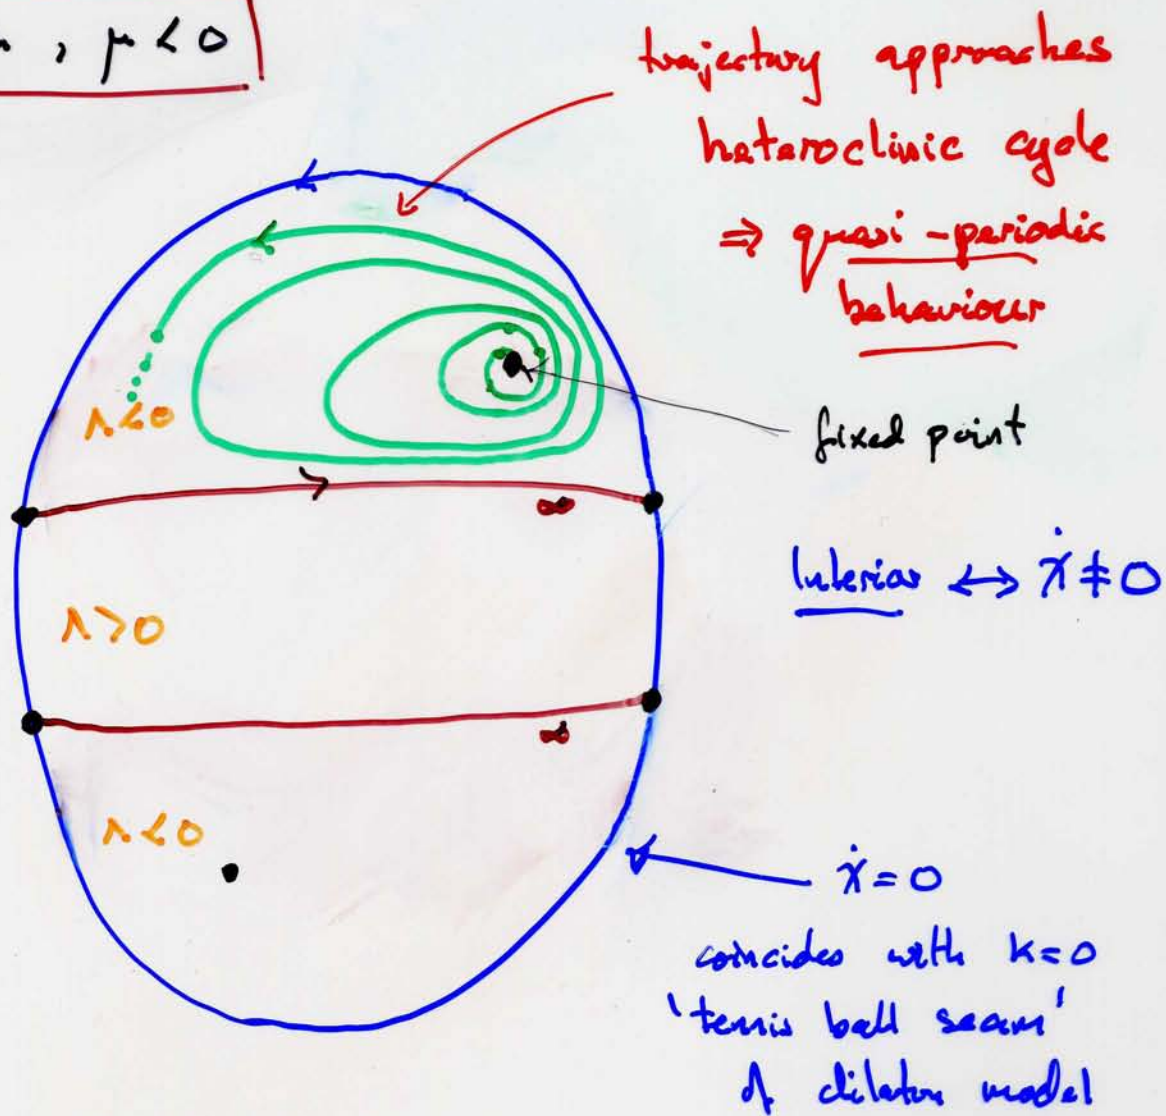 , μ < 0
trajectory approaches
heteroclinic cycle
⇒ quasi-periodic
behaviour
fixed point
Λ<0
∞
Interior ↔ χ̇ ≠ 0
Λ>0
∞
Λ<0
χ̇ = 0
coincides with k=0
'tennis ball seam'
of dilaton model